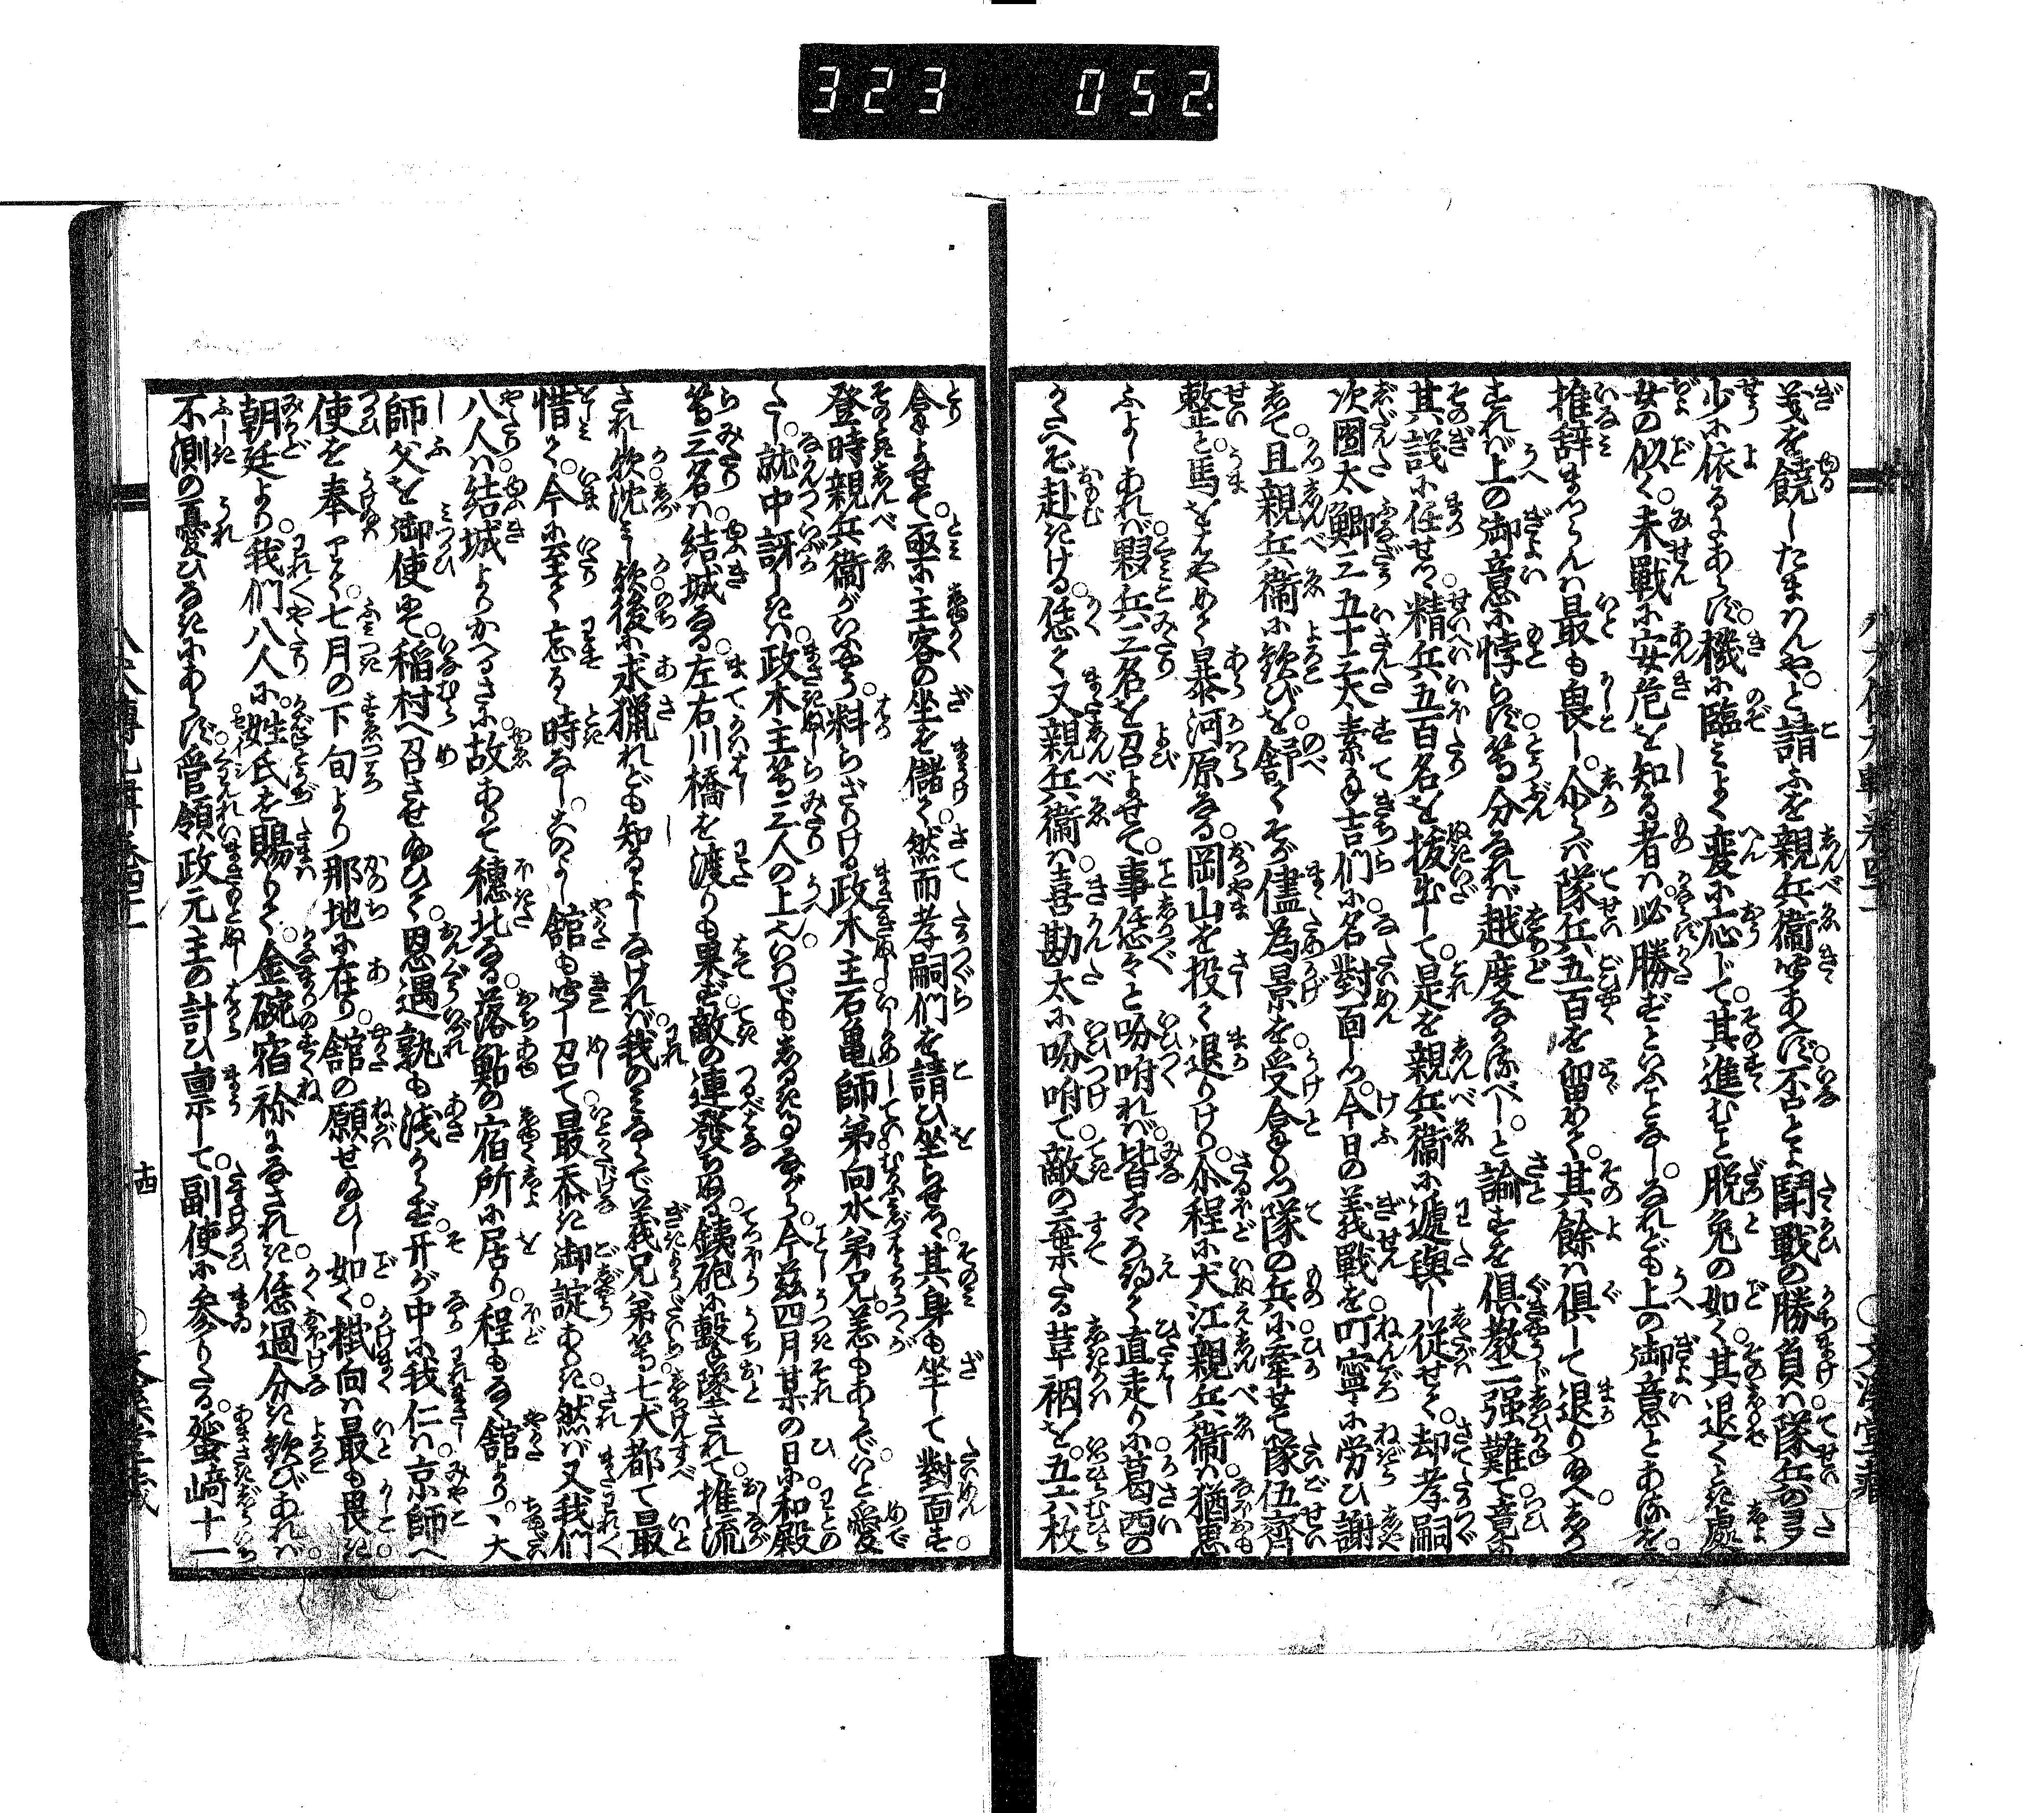 323 052
義を饒したまはんや。と請ふを親兵衛聞あへず。否とよ闘戦の勝負は。隊兵の多
少に依るにあらず。機に臨みよく変に応じて。其進むこと脱兎の如く。其退くとき處
女の似く。未戦に安危を知る者は。必勝ずといふことなし。なれども上の御意とあるを。
推辞まつらんは最も畏し。尒らば隊兵五百を留めて。其餘は倶して退り給へ。しか
すれば上の御意に悖らず。等分なれば越度なかるべし。と論すを倶教二強難て。竟に
其議に任せつ。精兵五百名を抜出して。是を親兵衛に逓與し従せて。却孝嗣
次團太鯽三五十三太素手吉們に名對面しつ。今日の義戦を叮寧に労ひ謝
して。且親兵衛に歓びを舒て。そが儘為景を受合りつ。隊の兵に牽せて隊伍齊
整と。馬をはやめて暴河原なる。岡山を投て退りけり。尒程に犬江親兵衛は猶思
ふよしあれば。夥兵三名を召よせて。事恁々と吩咐れば。皆こころ得て直走りに葛西の
かたへぞ赴きける。恁て又親兵衛は。喜勘太に吩咐て。敵の棄たる草裀を。五六枚
拿よせて。亟に主客の坐を儲て。然而孝嗣們を請ひ坐らせつ。其身も坐して對面す。
登時親兵衛がいふやう。料らざりける政木主。石亀師弟向水弟兄。恙もあらで。と愛
たし。就中訝しきは。政木主等三人の上へいへばでもしるきことながら。今茲四月某の日に。和殿
等三名は結城なる。左右川橋を渡りも果ず。敵の連發ちぬる。銕砲に撃墜されて。推流
され歟沈みし歟。後に求猟れども知るよしなければ。我のみならで義兄弟等。七犬都て最
惜て。今に至て忘るる時なし。このよし館も聞し召て。最忝き御諚あり。然ば又我們
八人は。結城よりかへるさに。故ありて穂北なる。落鮎の宿所に居り。程もなく館より。丶大
師父を御使もて。稲村へ召させ給ひて。恩遇孰も浅からず。开が中に我仁は。京師へ
使を奉りて。七月の下旬より那地に在り。舘の願せ給ひし如く。掛向は最も畏き
朝廷より。我們八人に。姓氏を賜りて。金碗宿祢になされき。恁過分き歓びあれば。
不測の憂ひなきにあらず。管領政元主の計ひ稟して。副使に参りたる。蜑崎十一
八犬傳九輯巻四十二
十四